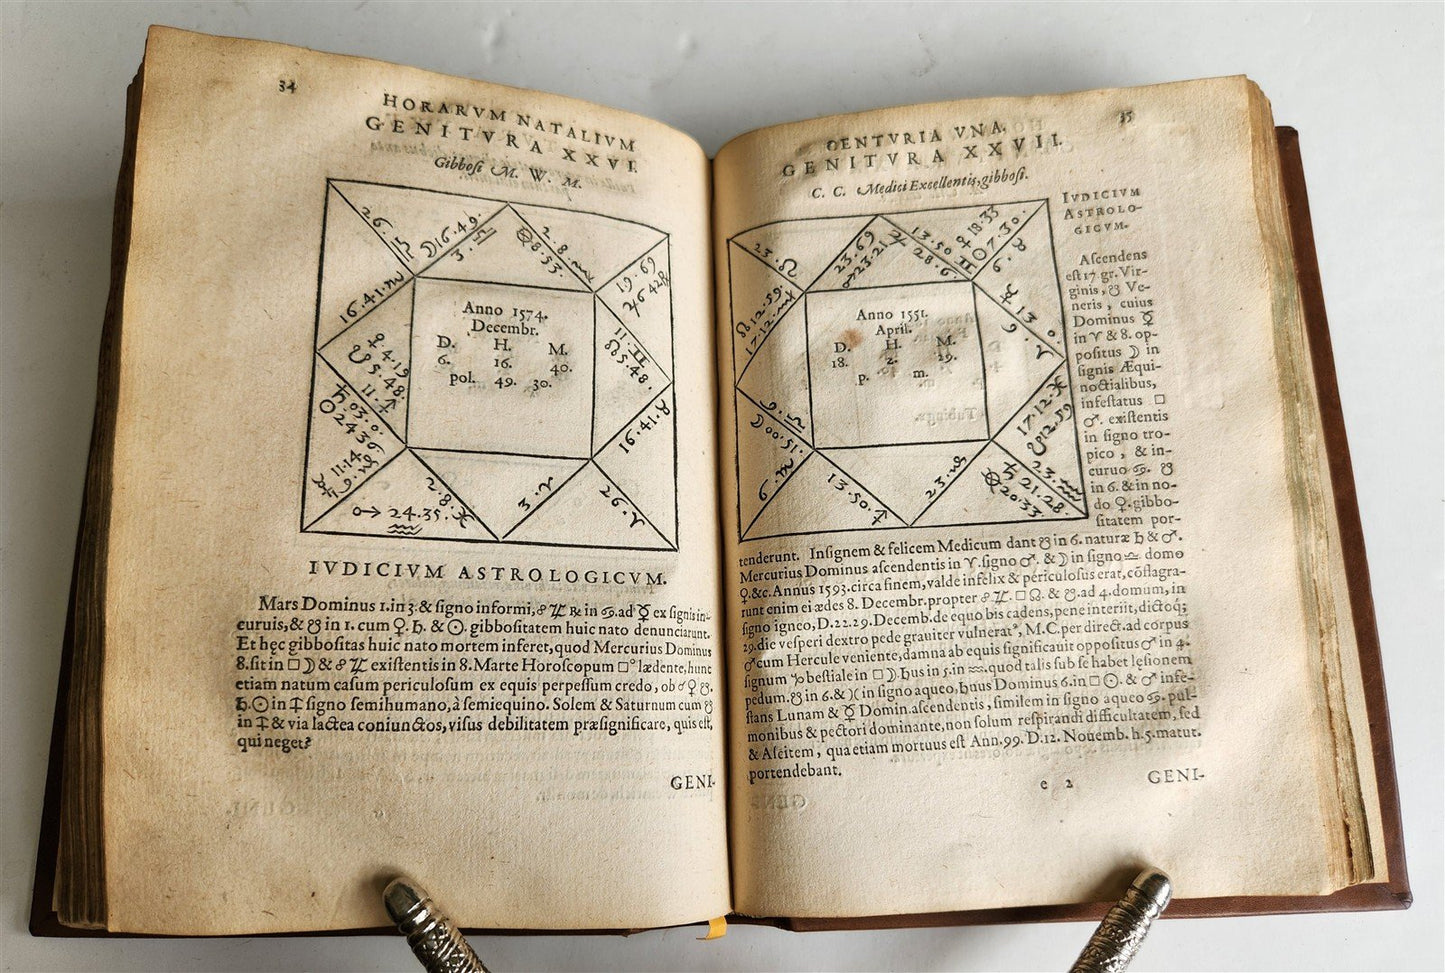 34
HORARVM NATALIVM
GENITVRA XXVI.
Gibbosi M. W. M.
26. ♎
☽16.49.
3. ♎
2.8.♏
⊗8.53.
19.69
♃642℞
16.41.♏
♀ 4.19
☋5.48.
11.♐
♄.03.0.
☉2436
11.14
☿ 9.♑
♂ 24.35.
♒
2.8.♓
3.♈
26.♈
16.41.♉
11.♊
☊5.48.
Anno 1574.
Decembr.
D. H. M.
6. 16. 40.
pol. 49. 30.
IVDICIVM ASTROLOGICVM.
Mars Dominus 1.in 3.& signo informi,☍ ♃ ℞ in ♋.ad ☿ ex signis in-
curuis,& ☋ in 1. cum ♀. ♄. & ☉. gibbositatem huic nato denunciarunt.
Et hęc gibbositas huic nato mortem inferet,quod Mercurius Dominus
8.sit in □ ☽ & ☍ ♃ existentis in 8.Marte Horoscopum □° lædente,hunc
etiam natum casum periculosum ex equis perpessum credo, ob ☌ ♀ ☋.
♄.☉ in ♐ signo semihumano,à semiequino. Solem & Saturnum cum ☋
in ♐ & via lactea coniunctos,visus debilitatem præsignificare, quis est,
qui neget?
GENI-
35
CENTVRIA VNA.
GENITVRA XXVII.
C. C. Medici Excellentis,gibbosi.
23.♌
23.69
♂23.21.
♃
13.50 ♊
28.6.
♀18.33
☉7.30.
6.♉
☿ 13. 0.
9. ♈
☊12.59.
17.12.♍
6.♎
☽00.51.
6. ♏
13.50.♐
23.♑
♄ 21.28.
⊗20.33
23.♒
17.12.♓
☋12.59
Anno 1551.
April.
D. H. M.
18. 2. 29.
p. m.
IVDICIVM
ASTROLO-
GICVM.
Ascendens
est 17 gr. Vir-
ginis, ☋ Ve-
neris, cuius
Dominus ☿
in ♈ & 8. op-
positus ☽ in
signis Æqui-
noctialibus,
infestatus □
♂. existentis
in signo tro-
pico, & in-
curuo ♋. ☋
in 6. & in no-
do ♀. gibbo-
sitatem por-
tenderunt. Insignem & felicem Medicum dant ☋ in 6. naturæ ♄ & ♂.
Mercurius Dominus ascendentis in ♈.signo ♂. & ☽ in signo ♎ domo
♀.&c. Annus 1593.circa finem, valde infelix & periculosus erat, cōflagra-
runt enim ei ædes 8. Decembr. propter ☍ ♃. □ ☊. & ☋. ad 4. domum, in
signo igneo, D.22.29. Decemb. de equo bis cadens, pene interiit, dictoq;
29.die vesperi dextro pede grauiter vulnerat⁹, M.C. per direct. ad corpus
♂ cum Hercule veniente, damna ab equis significauit oppositus ♂ in 4.
signum ♑ bestiale in □ ☽. ♄us in 5. in ♒. quod talis sub se habet lęsionem
pedum. ☋ in 6. & ♓ in signo aqueo, ♄nus Dominus 6. in □ ☉. & ♂ infe-
stans Lunam & ☿ Domin. ascendentis, similem in signo aqueo ♋. pul-
monibus & pectori dominante, non solum respirandi difficultatem, sed
& Ascitem, qua etiam mortuus est Ann. 99. D.12. Nouemb. h.5. matut.
portendebant.
e 2
GENI-